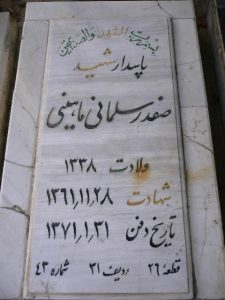 بسم رب الشهداء والصدیقین
پاسدار شهید
صفدر سلمانی ماهینی
ولادت ۱۳۳۸
شهادت ۱۳۶۱٫۱۱٫۲۸
تاریخ دفن ۱۳۷۱٫۱٫۳۱
قطعهٔ ۲۶ ردیف ۳۱ شماره ۴۳